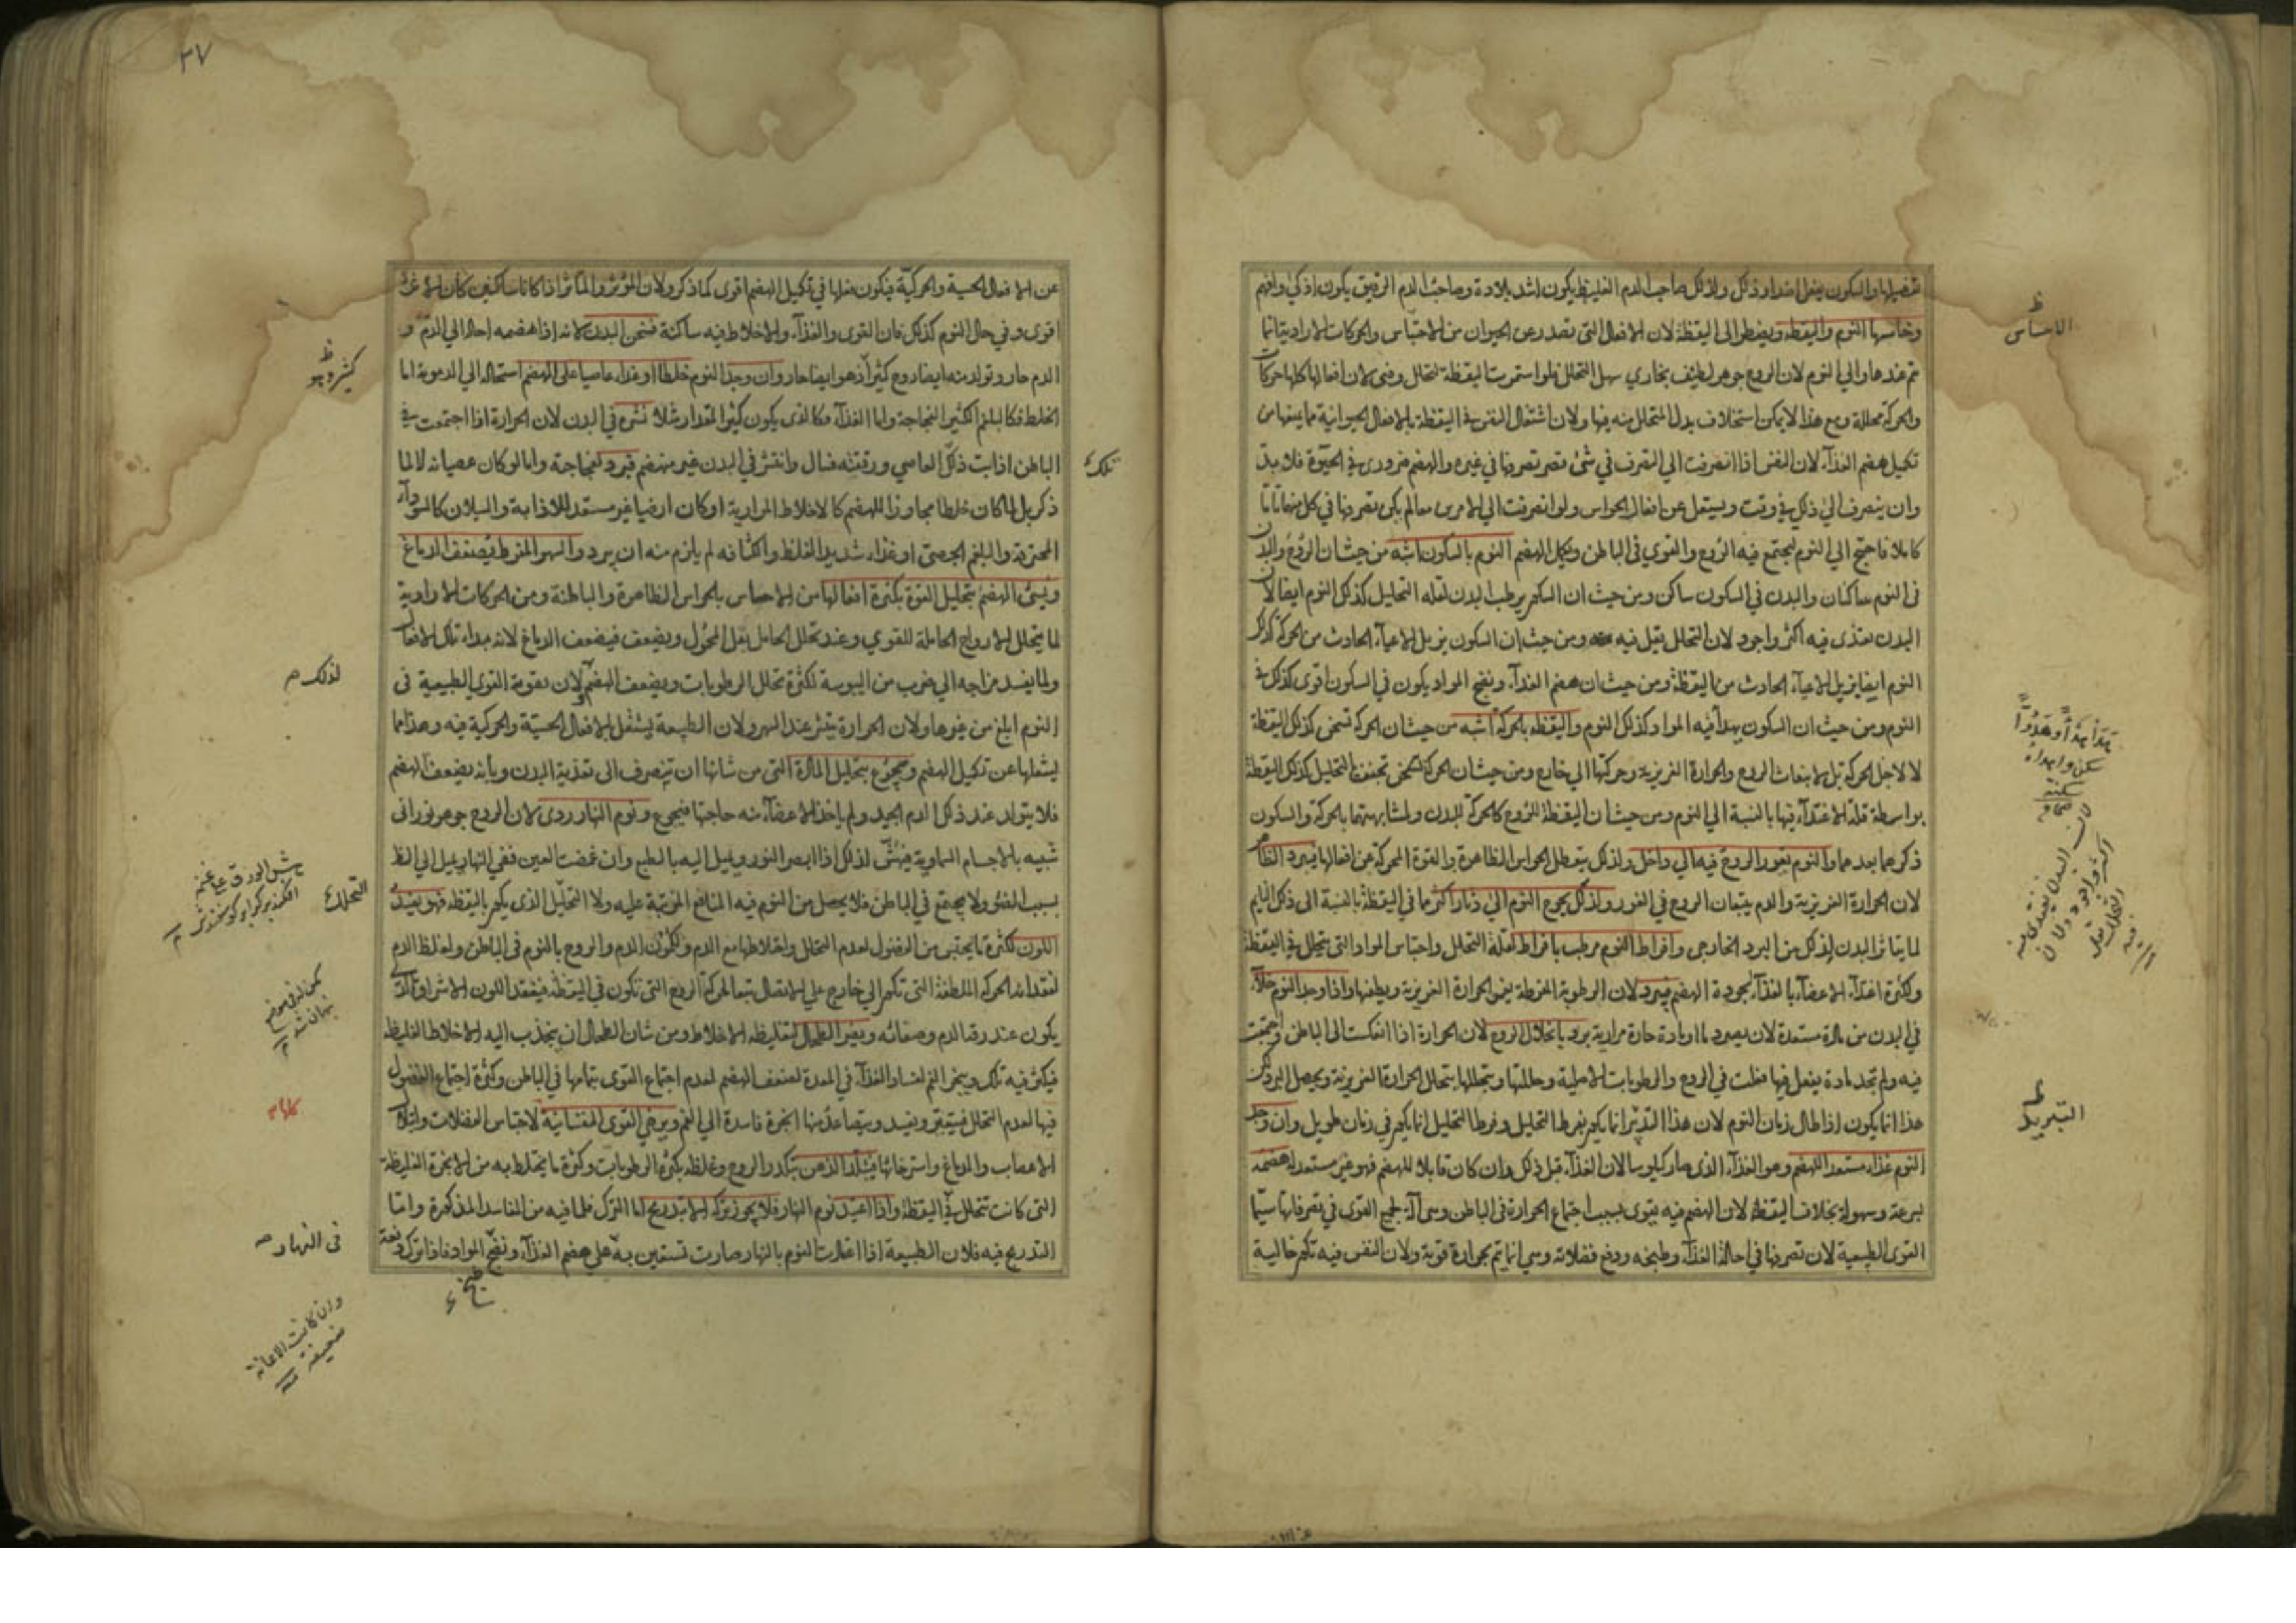 وخامسها النوم واليقظة ويضطر الى اليقظة لان الافعال التى تصدر عن الحيوان من الاحساس والحركات الارادية انما
تتم عندها والي النوم لان الروح جوهر لطيف بخاري سهل التحلل فلو استمرت اليقظة لتحلل وفنى لان افعالها كلها حركات
والحركة محللة ومع هذا لا يمكن استخلاف بدل المتحلل منه فيها ولان اشتغال النفس في اليقظة بالافعال الحيوانية مما يمنعها من
تكميل هضم الغذآء لان النفس اذا انصرفت الي التصرف في شئ قصر تصرفها في غيره والهضم ضروري في الحيوة فلا بد
وان ينصرف الي ذلك في وقت ويستعمل عن افعال الحواس ولو انصرفت الي الامرين معا لم يكن تصرفها في كل منهما تاما
كاملا فاحتيج الي النوم ليجتمع فيه الروح والقوي في الباطن ويكمل الهضم النوم بالسكون اشبه من حيث ان الروح والبدن
فى النوم ساكنان والبدن في السكون ساكن ومن حيث ان السكون يرطب البدن لقلة التحليل كذلك النوم ايضا لان
البدن يغتذى فيه اكثر واجود لان التحلل يقل فيه ومن حيث ان السكون يزيل الاعيآء الحادث من الحركة كذلك
النوم ايضا يزيل الاعيآء الحادث من اليقظة ومن حيث ان هضم الغذآء ونضج المواد يكون في السكون اقوى كذلك في
النوم ومن حيث ان السكون يهدأ فيه المواد كذلك النوم واليقظة بالحركة اشبه من حيث ان الحركة تسخن كذلك اليقظة
لا لاجل الحركة بل لانبعاث الروح والحرارة الغريزية وحركتها الي خارج ومن حيث ان الحركة تجفف بالتحليل كذلك اليقظة
بواسطة قلة الاغتذآء فيها بالنسبة الي النوم ومن حيث ان اليقظة للروح كالحركة للبدن ولمشابهتهما بالحركة والسكون
ذكرهما بعدهما والنوم يغور الروح فيه الي داخل ولذلك يتعطل الحواس الظاهرة والقوة المحركة عن افعالها فيبرد الظاهر
لان الحرارة الغريزية والدم يتبعان الروح في الغور ولذلك يحوج النوم الي دثار اكثر مما في اليقظة بالنسبة الى ذلك النايم
لما يتاثر البدن لذلك من البرد الخارجي وافراط النوم مرطب بافراط لقلة التحلل واحتباس المواد التى يتحلل في اليقظة
وكثرة اغتذآء الاعضآء بالغذآء لجودة الهضم فيبرد لان الرطوبة المفرطة تغمر الحرارة الغريزية ويطفئها واذا وجد النوم خلآء
في البدن من مادة مستعدة لان يصير دما او مادة حارة مرارية برد بانحلال الروح لان الحرارة اذا انعكست الى الباطن واجتمعت
فيه ولم تجد مادة يفعل فيها فعلت في الروح والرطوبات الاصلية وحللتها وبتحللها يتحلل الحرارة الغريزية ويحصل البرد لكن
هذا انما يكون اذا طال زمان النوم لان هذا التبريد انما يكون بفرط التحليل وفرط التحليل انما يكون في زمان طويل وان وجد
النوم غذاء مستعدا للهضم وهو الغذآء الذى صار كيلوسا لان الغذآء قبل ذلك وان كان قابلا للهضم فهو غير مستعد له هضمه
بسرعة وسهولة بخلاف اليقظة لان الهضم فيه يقوى بسبب اجتماع الحرارة فى الباطن وهي آلة لجميع القوى في تصرفاتها سيما
القوى الطبيعية لان تصرفها في احالة الغذآء وطبخه ودفع فضلاته وهي انما يتم بحرارة قوية ولان النفس فيه تكون خالية
الاحساس
التبريد
٣٧
عن الافعال الحسية والحركية فيكون فعلها في تكميل الهضم اقوى كما ذكر ولان المؤثر والمتاثر اذا كانا ساكنين كان الاثر
اقوى وفي حال النوم كذلك فان القوى والغذآء والاخلاط فيه ساكنة فسخن البدن لانه اذا هضمه احاله الي الدم و
الدم حار وتولد منه ايضا روح كثير اذ هو ايضا حار وان وجد النوم خلطا او غذاء عاصيا على الهضم استحاله الي الدموية اما
الخلط فكالبلغم الكثير الفجاجة واما الغذآء فكالذى يكون كثير المقدار مثلا نشره في البدن لان الحرارة اذا اجتمعت في
الباطن اذابت ذلك العاصي ورققته فسال وانتشر في البدن غير منهضم فبرد لفجاجته واما لو كان عصيانه لا لما
ذكر بل لما كان خلطا مجاوزا للهضم كالاخلاط المرارية او كان ارضيا غير مستعد للاذابة والسيلان كالسودآء
المحترقة والبلغم الجصي او غذاء شديد الغلظ والكثافة لم يلزم منه ان يبرد والسهر المفرط يضعف الدماغ
ويسئ الهضم بتحليل القوة بكثرة افعالها من الاحساس بالحواس الظاهرة والباطنة ومن الحركات الارادية
لما يتحلل الارواح الحاملة للقوي وعند تحلل الحامل يقل المحمول ويضعف فيضعف الدماغ لانه مبداء تلك الافعال
ولما يفسد مزاجه الي ضرب من اليبوسة لكثرة تحلل الرطوبات ويضعف الهضم لان تقوية القوي الطبيعية فى
النوم ابلغ من غيرها ولان الحرارة ينتشر عند السهر ولان الطبيعة يشتغل بالافعال الحسية والحركية فيه وهذا مما
يشغلها عن تكميل الهضم ويجوع بتحليل المادة التى من شانها ان تنصرف الى تغذية البدن وبانه يضعف الهضم
فلا يتولد عند ذلك الدم الجيد ولم ياخذ الاعضآء منه حاجتها فيجوع ونوم النهار ردى لان الروح جوهر نورانى
شبيه بالاجسام السماوية فيهش لذلك اذا ابصر النور ويميل اليه بالطبع وان غمضت العين ففي النهار يميل الي الظاهر
بسبب الضوء ولا يجتمع في الباطن فلا يحصل من النوم فيه المنافع المترتبة عليه ولا التحليل الذى يكون باليقظة فهو يفسد
اللون لكثرة ما يحتبس من الفضول لعدم التحلل واختلاطها مع الدم ولكون الدم والروح بالنوم فى الباطن ولغلظ الدم
لفقدانه الحركة الملطفة التى تكون الي خارج على الاتصال تبعا لحركة الروح التى تكون في اليقظة فيفقد اللون الاشراق الذى
يكون عند رقة الدم وصفائه ويضر الطحال لتغليظه الاخلاط ومن شان الطحال ان ينجذب اليه الاخلاط الغليظة
فيكثر فيه تلك ويبخر الفم لفساد الغذآء في المعدة لضعف الهضم لعدم اجتماع القوى بتمامها في الباطن وكثرة اجتماع الفضول
فيها لعدم التحلل فيتعفن ويفسد ويتصاعد منها ابخرة فاسدة الي الفم ويرخي القوى النفسانية لاحتباس الفضلات وابتلال
الاعصاب والدماغ واسترخائها فيتبلد الذهن بتكدر الروح وغلظه بكثرة الرطوبات وكثرة ما يختلط به من الابخرة الغليظة
التى كانت تتحلل في اليقظة واذا اعتيد نوم النهار فلا يجوز تركه الا بتدريج اما الترك فلما فيه من المفاسد المذكورة واما
التدريج فيه فلان الطبيعة اذا اعتادت النوم بالنهار صارت تستعين به على هضم الغذآء ونضج المواد فاذا ترك دفعة
تلك
لذلك
التحلل
فى النهار
وان كانت الاعانة
ضعيفة
طبخ